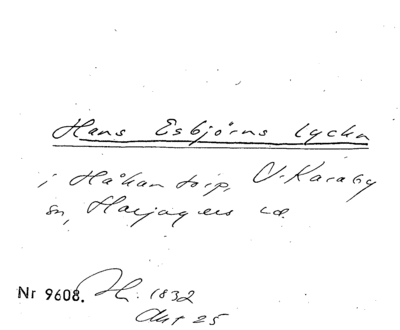 Hans Esbjörns lycka
i Håkantorp, V. Karaby
sn, Harjagers hd.
Nr 9608. 1832
Akt 25